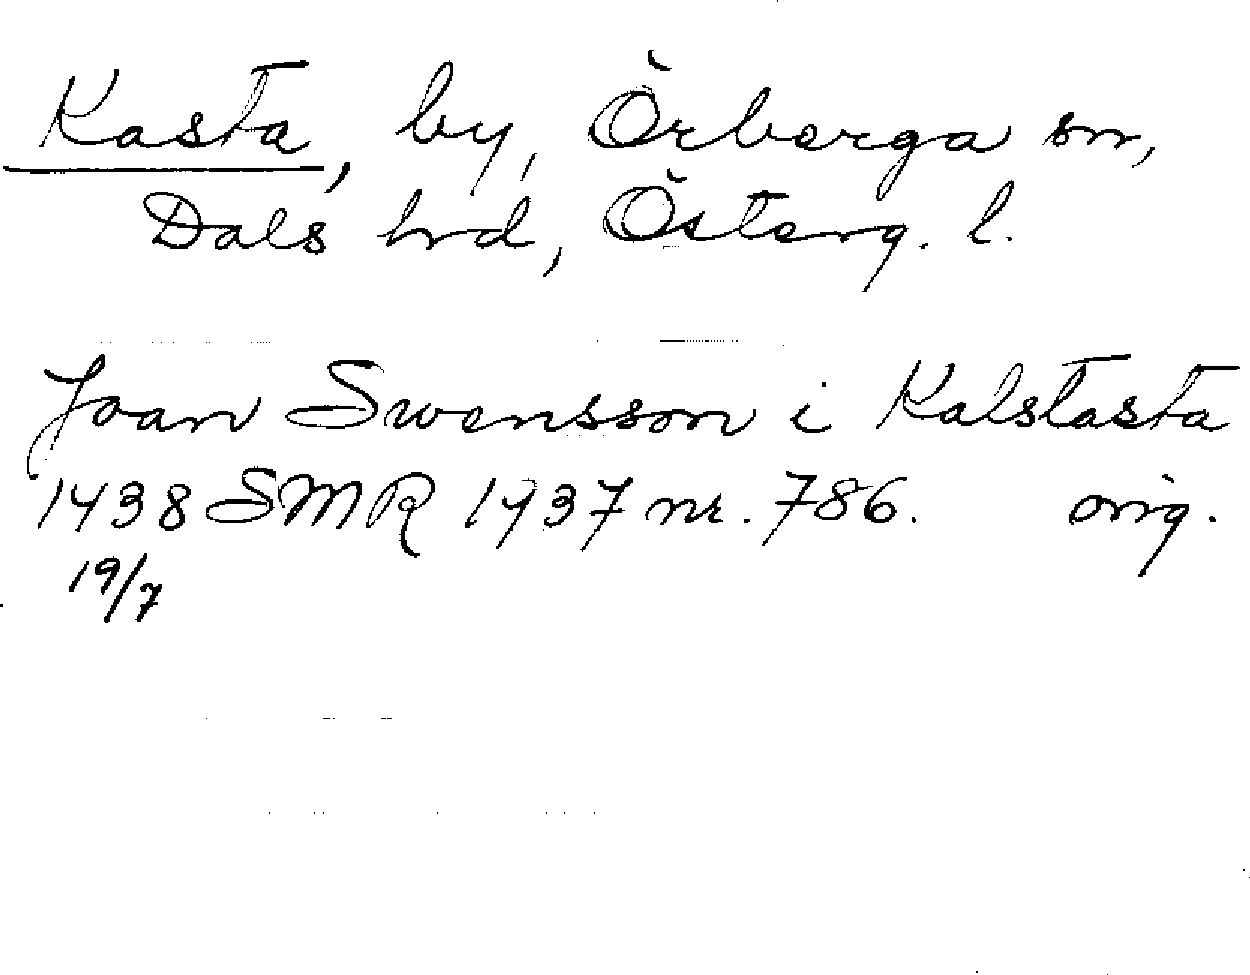 Kasta, by, Örberga sn,
Dals hrd, Österg. l.
Joan Swensson i Kalstasta
1438 SMR 1937 nr. 786. orig.
19/7